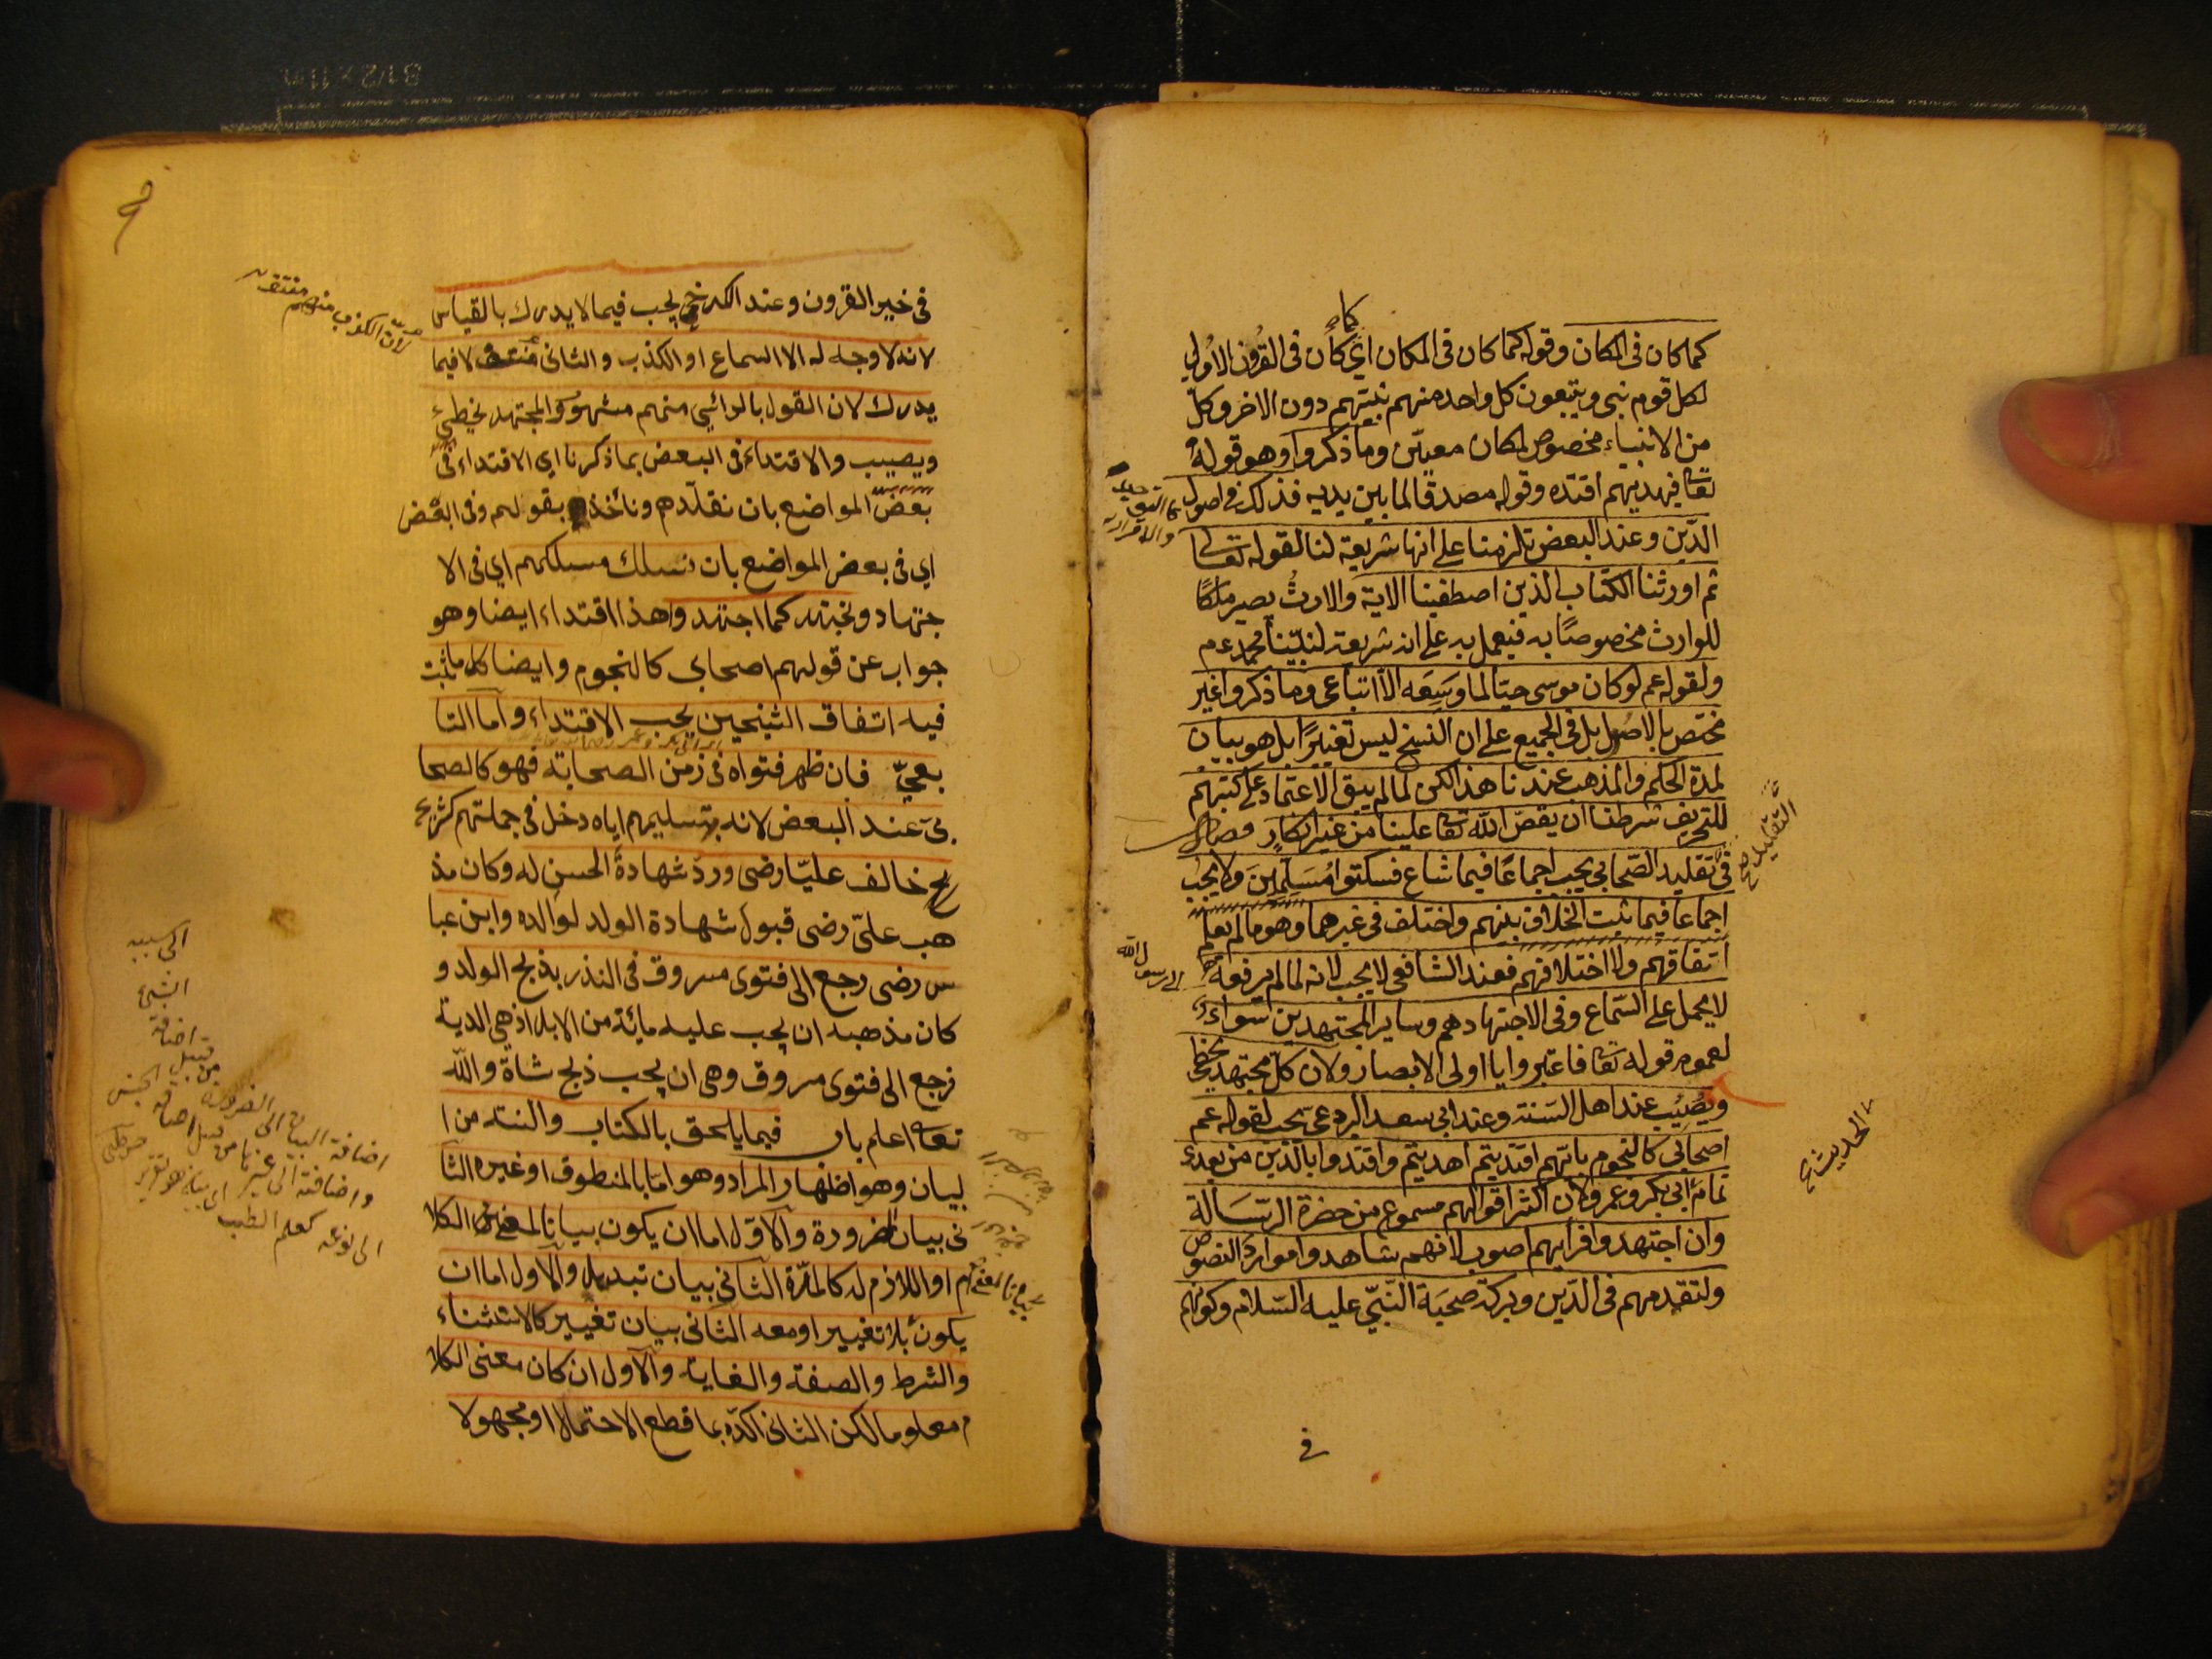 كما كان فى المكان وقوله كما كان فى المكان اي كان فى القرون الاولى
لكل قوم نبى ويتبعون كل واحد منهم نبيّهم دون الاخر وكلّ
من الانبياء مخصوص لمكان معيّن وما ذكروا وهو قوله
تعا فبهديهم اقتده وقوله مصدقا لما بين يديه فذلك فى اصول
الدّين وعند البعض تلزمنا على انها شريعة لنا لقوله تعالى
ثم اورثنا الكتاب الذين اصطفينا الاية والارثُ يصير ملكًا
للوارث مخصوصًا به فنعمل به على انه شريعة لنبيّنا محمد عم
ولقوله عم لو كان موسى حيّا لما وسِعَه الّا اتباعى وما ذكروا غير
مختص بالاصول بل فى الجميع على ان النسخ ليس تغييرًا بل هو بيان
لمدة الحكم والمذهب عندنا هذا لكن لما لم يبق الاعتماد على كتبهم
للتحريف شرطنا ان يقصّ الله تعا علينا من غير انكارٍ فصل
فى تقليد الصّحابى يجب اجماعًا فيما شاع فسكتوا مُسَلِّمينَ ولا يجب
اجماعا فيما ثبت الخلاف بينهم واختلف فى غيرهما وهو ما لم يعلم
اتفاقهم ولا اختلافهم فعند الشافعى لا يجب لانه لما لم يرفعه
لا يحمل على السّماع وفى الاجتهاد هم وساير المجتهدين سواء
لعموم قوله تعا فاعتبروا يا اولى الابصار ولان كل مجتهد يخطئ
ويُصِيْب عند اهل السّنة وعند ابى سعد البردعىّ يجب لقوله عم
اصحابى كالنجوم بايّهم اقتديتم اهديتم واقتدوا بالذين من بعدى
تمامه ابى بكر وعمر ولان اكثر اقوالهم مسموع من حضرة الرّسَالة
وان اجتهدوا فرايهم اصوب لانهم شاهدوا موارد النصوص
ولتقدمهم فى الدّين وبركة صحبة النّبيّ عليه السّلام وكونهم
فى
التقليد صح
الى رسول الله
الحديث صح
فى خير القرون وعند الكرخى يجب فيما لا يدرك بالقياس
لانه لا وجه له الا السماع او الكذب والثانى منتف لا فيما
يدرك لان القول بالرائي منهم مشهور والمجتهد يخطئ
ويصيب والاقتداء فى البعض بما ذكرنا اي الاقتداء فى
بعض المواضع بان نقلّدهم ونأخذ بقولهم وفى البعض
اي فى بعض المواضع بان نسلك مسلكهم اي فى الا
جتهاد ونجتهد كما اجتهدوا هذا اقتداء ايضا وهو
جواب عن قولهم اصحابي كالنجوم وايضا كل ما ثبت
فيه اتفاق الشيخين يجب الاقتداء واما التا
بعيّ فان ظهر فتواه فى زمن الصحابة فهو كالصحا
بى عند البعض لانه بتسليمهم اياه دخل فى جملتهم كشر
يح خالف عليّا رضى وردّ شهادة الحسن له وكان مذ
هب علىّ رضى قبول شهادة الولد لوالده وابن عبا
س رضى رجع الى فتوى مسروق فى النذر بذبح الولد و
كان مذهبه ان يجب عليه مائة من الابل اذ هي الدية
فرجع الى فتوى مسروق وهى ان يجب ذبح شاة والله
تعا اعلم باب فيما يلحق بالكتاب والسنة من ا
لبيان وهو اظهار المراد وهو امّا بالمنطوق او غيره الثا
نى بيان ضرورة والاوّل اما ان يكون بيانا لمعنى الكلا
م او اللازم له كالمدّة الثانى بيان تبديل والاول اما ان
يكون بلا تغيير او معه الثانى بيان تغيير كالاستثناء
والشرط والصفة والغاية والاول ان كان معنى الكلا
م معلوما لكن الثانى اكّده بما قطع الاحتمال او مجهولا
لان الكذب منهم منتف
الى سببه
الشئ
اضافة
من قبيل
اضافة البيان الى الضرورة
الى نوعه كعلم الطب